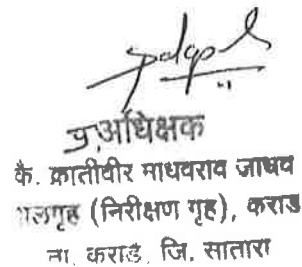 प्र.अधिक्षक
कै. क्रातीवीर माधवराव जाधव
बालगृह (निरीक्षण गृह), कराड
ता. कराड, जि. सातारा